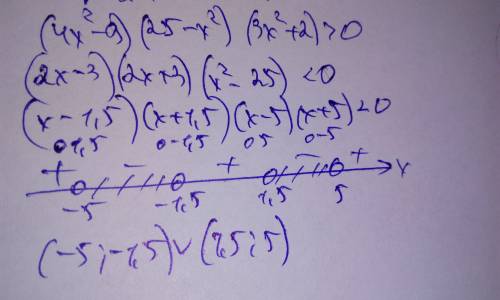 (4x²-9)(25-x²)(3x²+2)>0
(2x-3)(2x+3)(x²-25)<0
(x-1,5)(x+1,5)(x-5)(x+5)<0
01,5 0-1,5 05 0-5
+ - + - +
-5 -1,5 1,5 5 x
(-5;-1,5)∪(1,5;5)